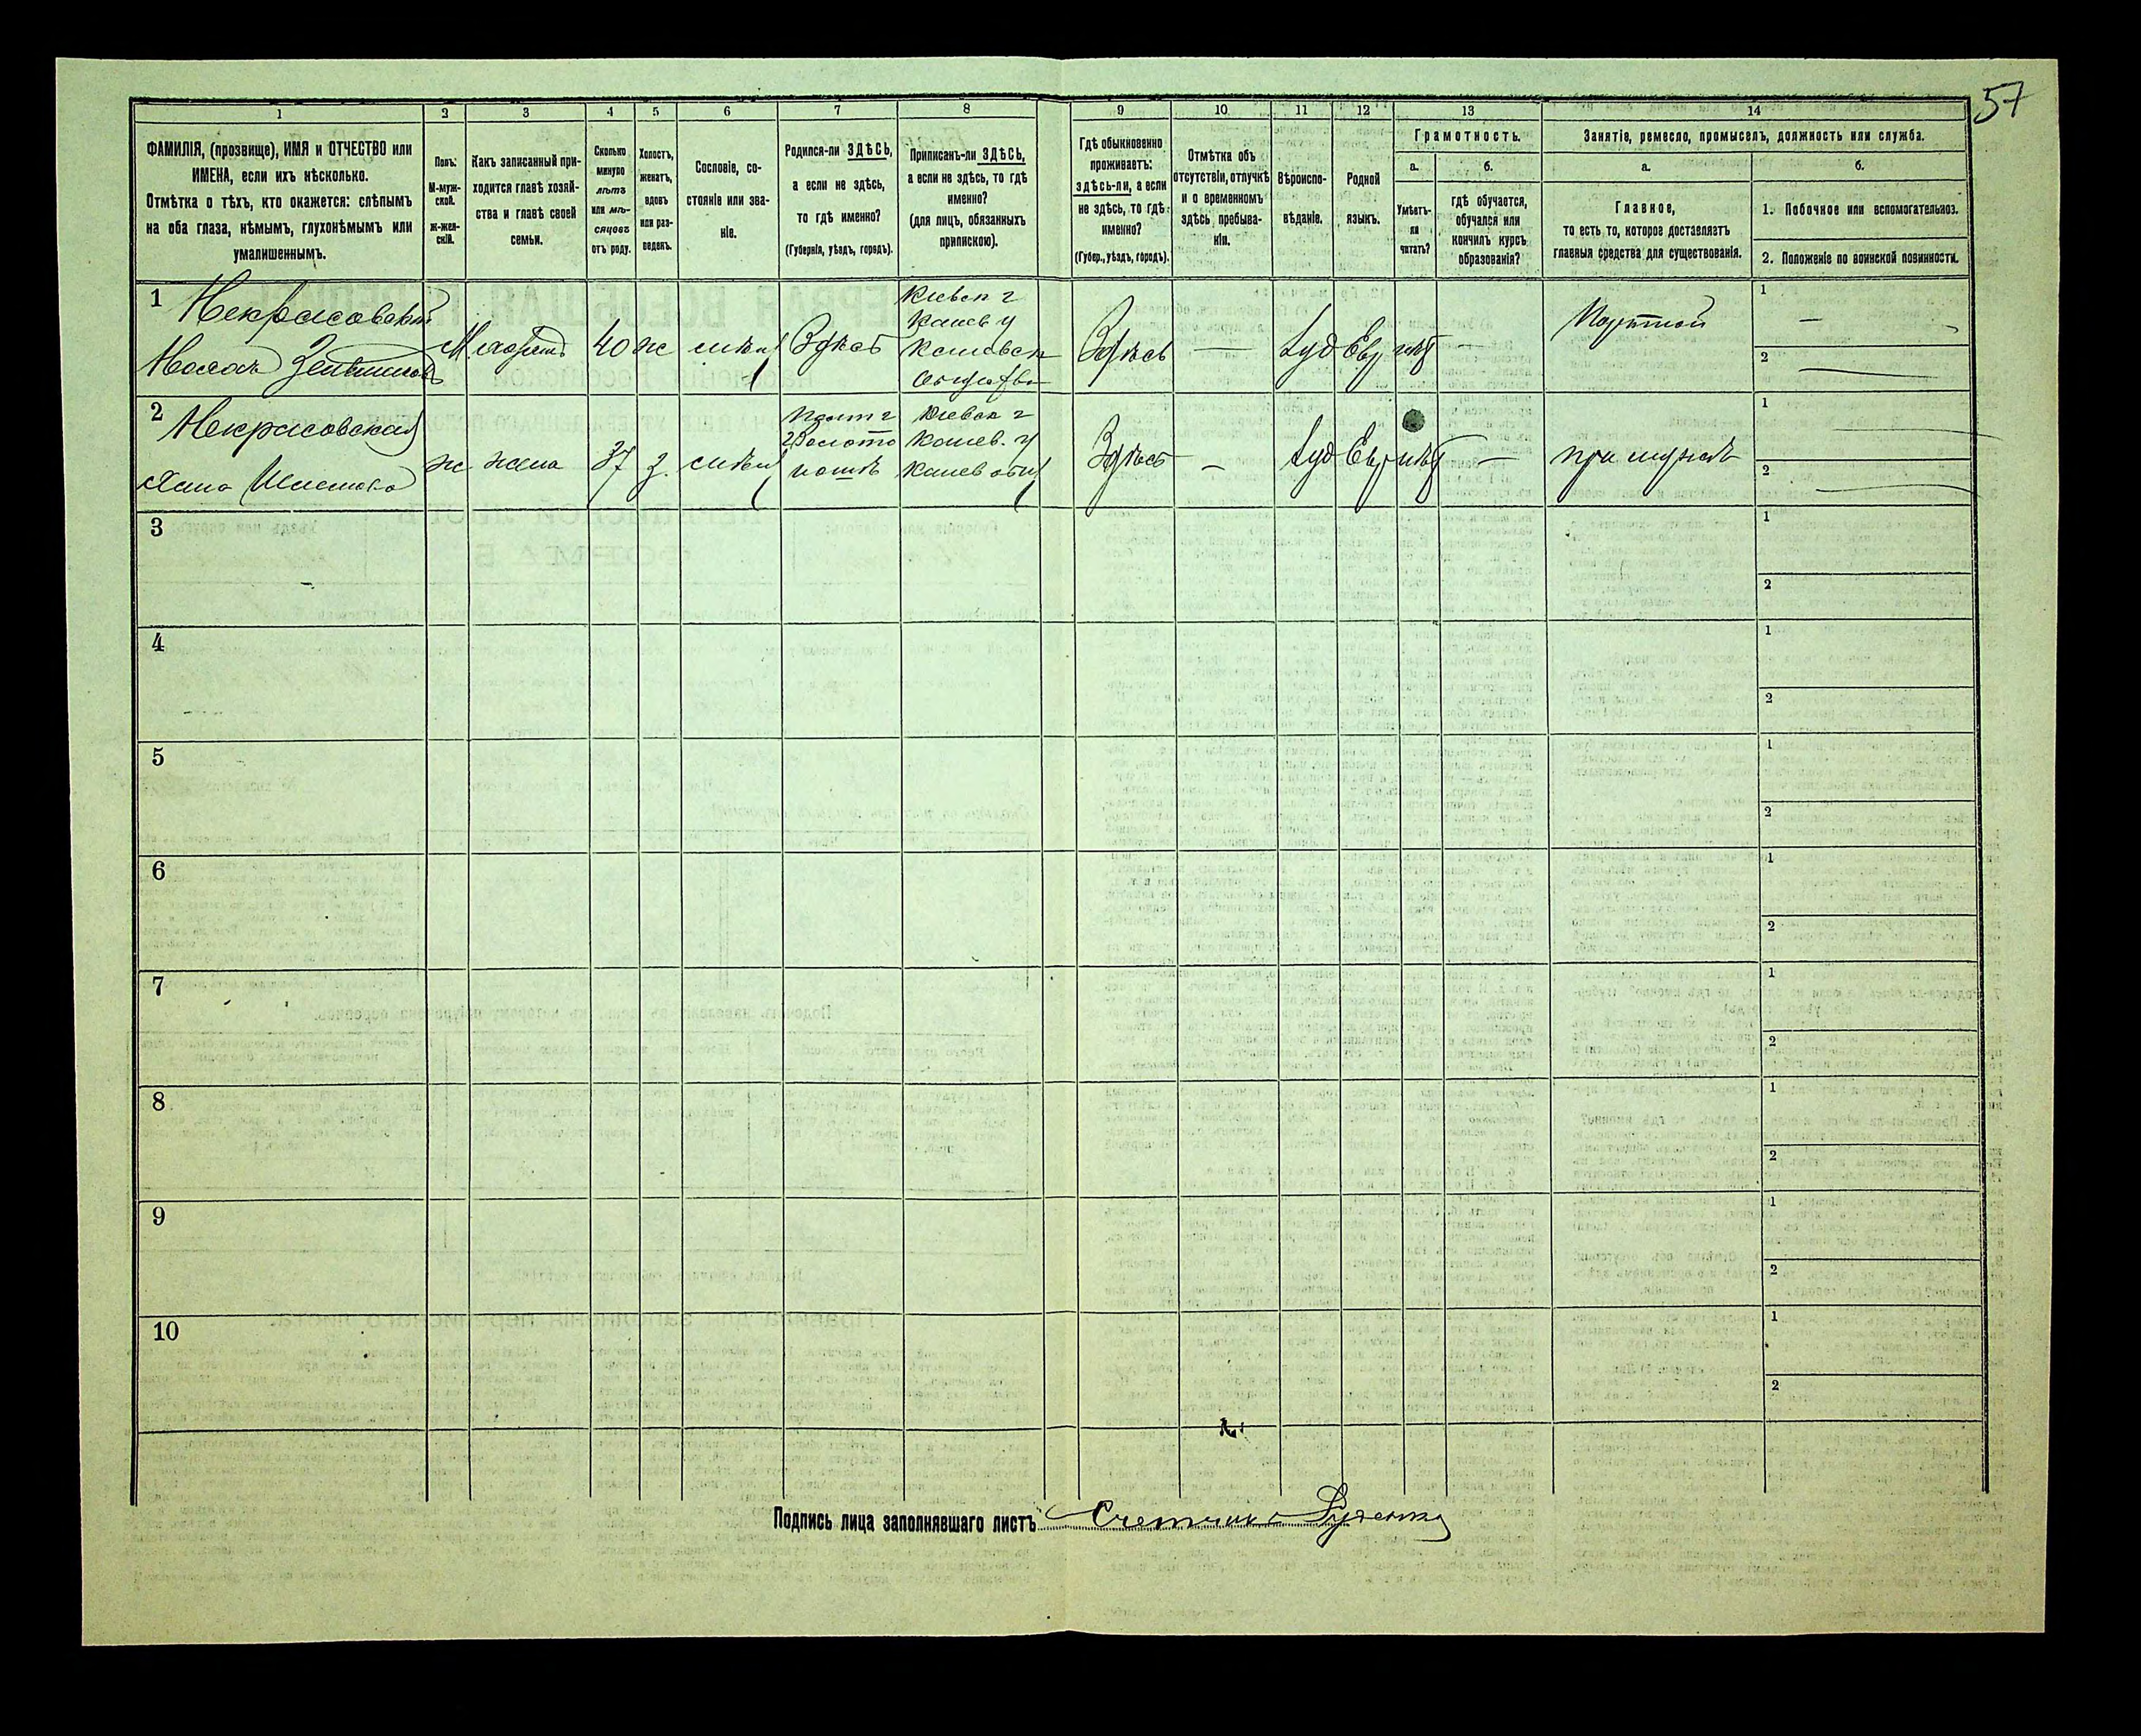 57
1 2 3 4 5 6 7 8 9 10 11 12 13 14
ФАМИЛІЯ, (прозвище), ИМЯ и ОТЧЕСТВО или
ИМЕНА, если ихъ нѣсколько.
Отмѣтка о тѣхъ, кто окажется: слѣпымъ
на оба глаза, нѣмымъ, глухонѣмымъ или
умалишеннымъ.
Полъ:
М-муж-
ской.
Ж-жен-
скій.
Какъ записанный при-
ходится главѣ хозяй-
ства и главѣ своей
семьи.
Сколько
минуло
лѣтъ
или мѣ-
сяцовъ
отъ роду.
Холостъ,
женатъ,
вдовъ
или раз-
веденъ.
Сословіе, со-
стояніе или зва-
ніе.
Родился-ли ЗДѢСЬ,
а если не здѣсь,
то гдѣ именно?
(Губернія, уѣздъ, городъ).
Приписанъ-ли ЗДѢСЬ,
а если не здѣсь, то гдѣ
именно?
(для лицъ, обязанныхъ
припискою).
Гдѣ обыкновенно
проживаетъ:
здѣсь-ли, а если
не здѣсь, то гдѣ
именно?
(Губер., уѣздъ, городъ).
Отмѣтка объ
отсутствіи, отлучкѣ
и о временномъ
здѣсь пребыва-
ніи.
Вѣроиспо-
вѣданіе.
Родной
языкъ.
Грамотность.
а. б.
Умѣетъ-
ли
читать?
гдѣ обучается,
обучался или
кончилъ курсъ
образованія?
Занятіе, ремесло, промыселъ, должность или служба.
а. б.
Главное,
то есть то, которое доставляетъ
главныя средства для существованія.
1. Побочное или вспомогательное.
2. Положеніе по воинской повинности.
1 Некрасовскій
М 40 ж Здѣсь
Кіевск г
Канев у
Каневск
Здѣсь — Іуд Евр —
Портной
1 —
2 —
2 Некрасовская
Хана
ж жена 37 з.
Полт г
Золото
ношѣ
Кіевск г
Канев. у
Здѣсь — Іуд Евр —
при мужѣ
1
2
3 1
2
4 1
2
5 1
2
6 1
2
7 1
2
8 1
2
9 1
2
10 1
2
Подпись лица заполнявшаго листъ Счетчикъ